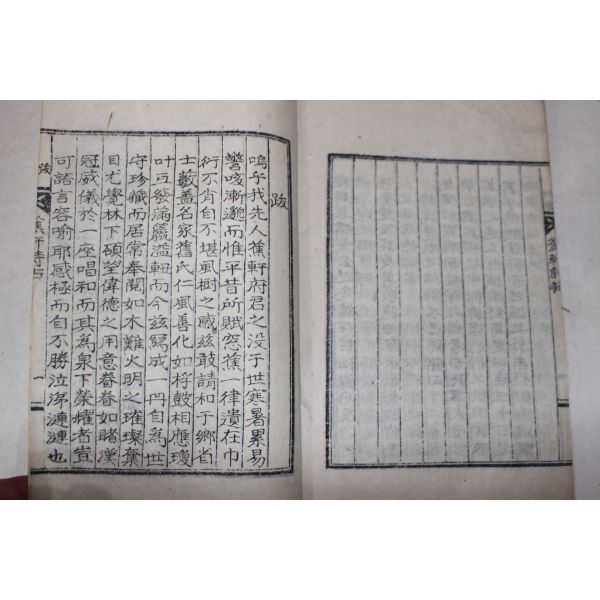 跋
嗚乎我先人蕉軒府君之沒于世寒暑累易
謦咳漸邈而惟平昔所賦窓蕉一律遺在巾
衍不肖自不堪風樹之感玆敢請和于鄕省
士藪盖名家舊氏仁風善化如桴鼓相應瓊
什玉發滿籯溢軸而今玆寫成一冊自爲世
守珍藏而居常奉閱如木難火明之璀璨棄
目尤覺林下碩望偉德之用意眷眷如睹漢
冠威儀於一座唱和而其爲泉下榮耀者豈
可語言容喻耶感極而自不勝泣涕漣漣也
跋
蕉軒詩
一